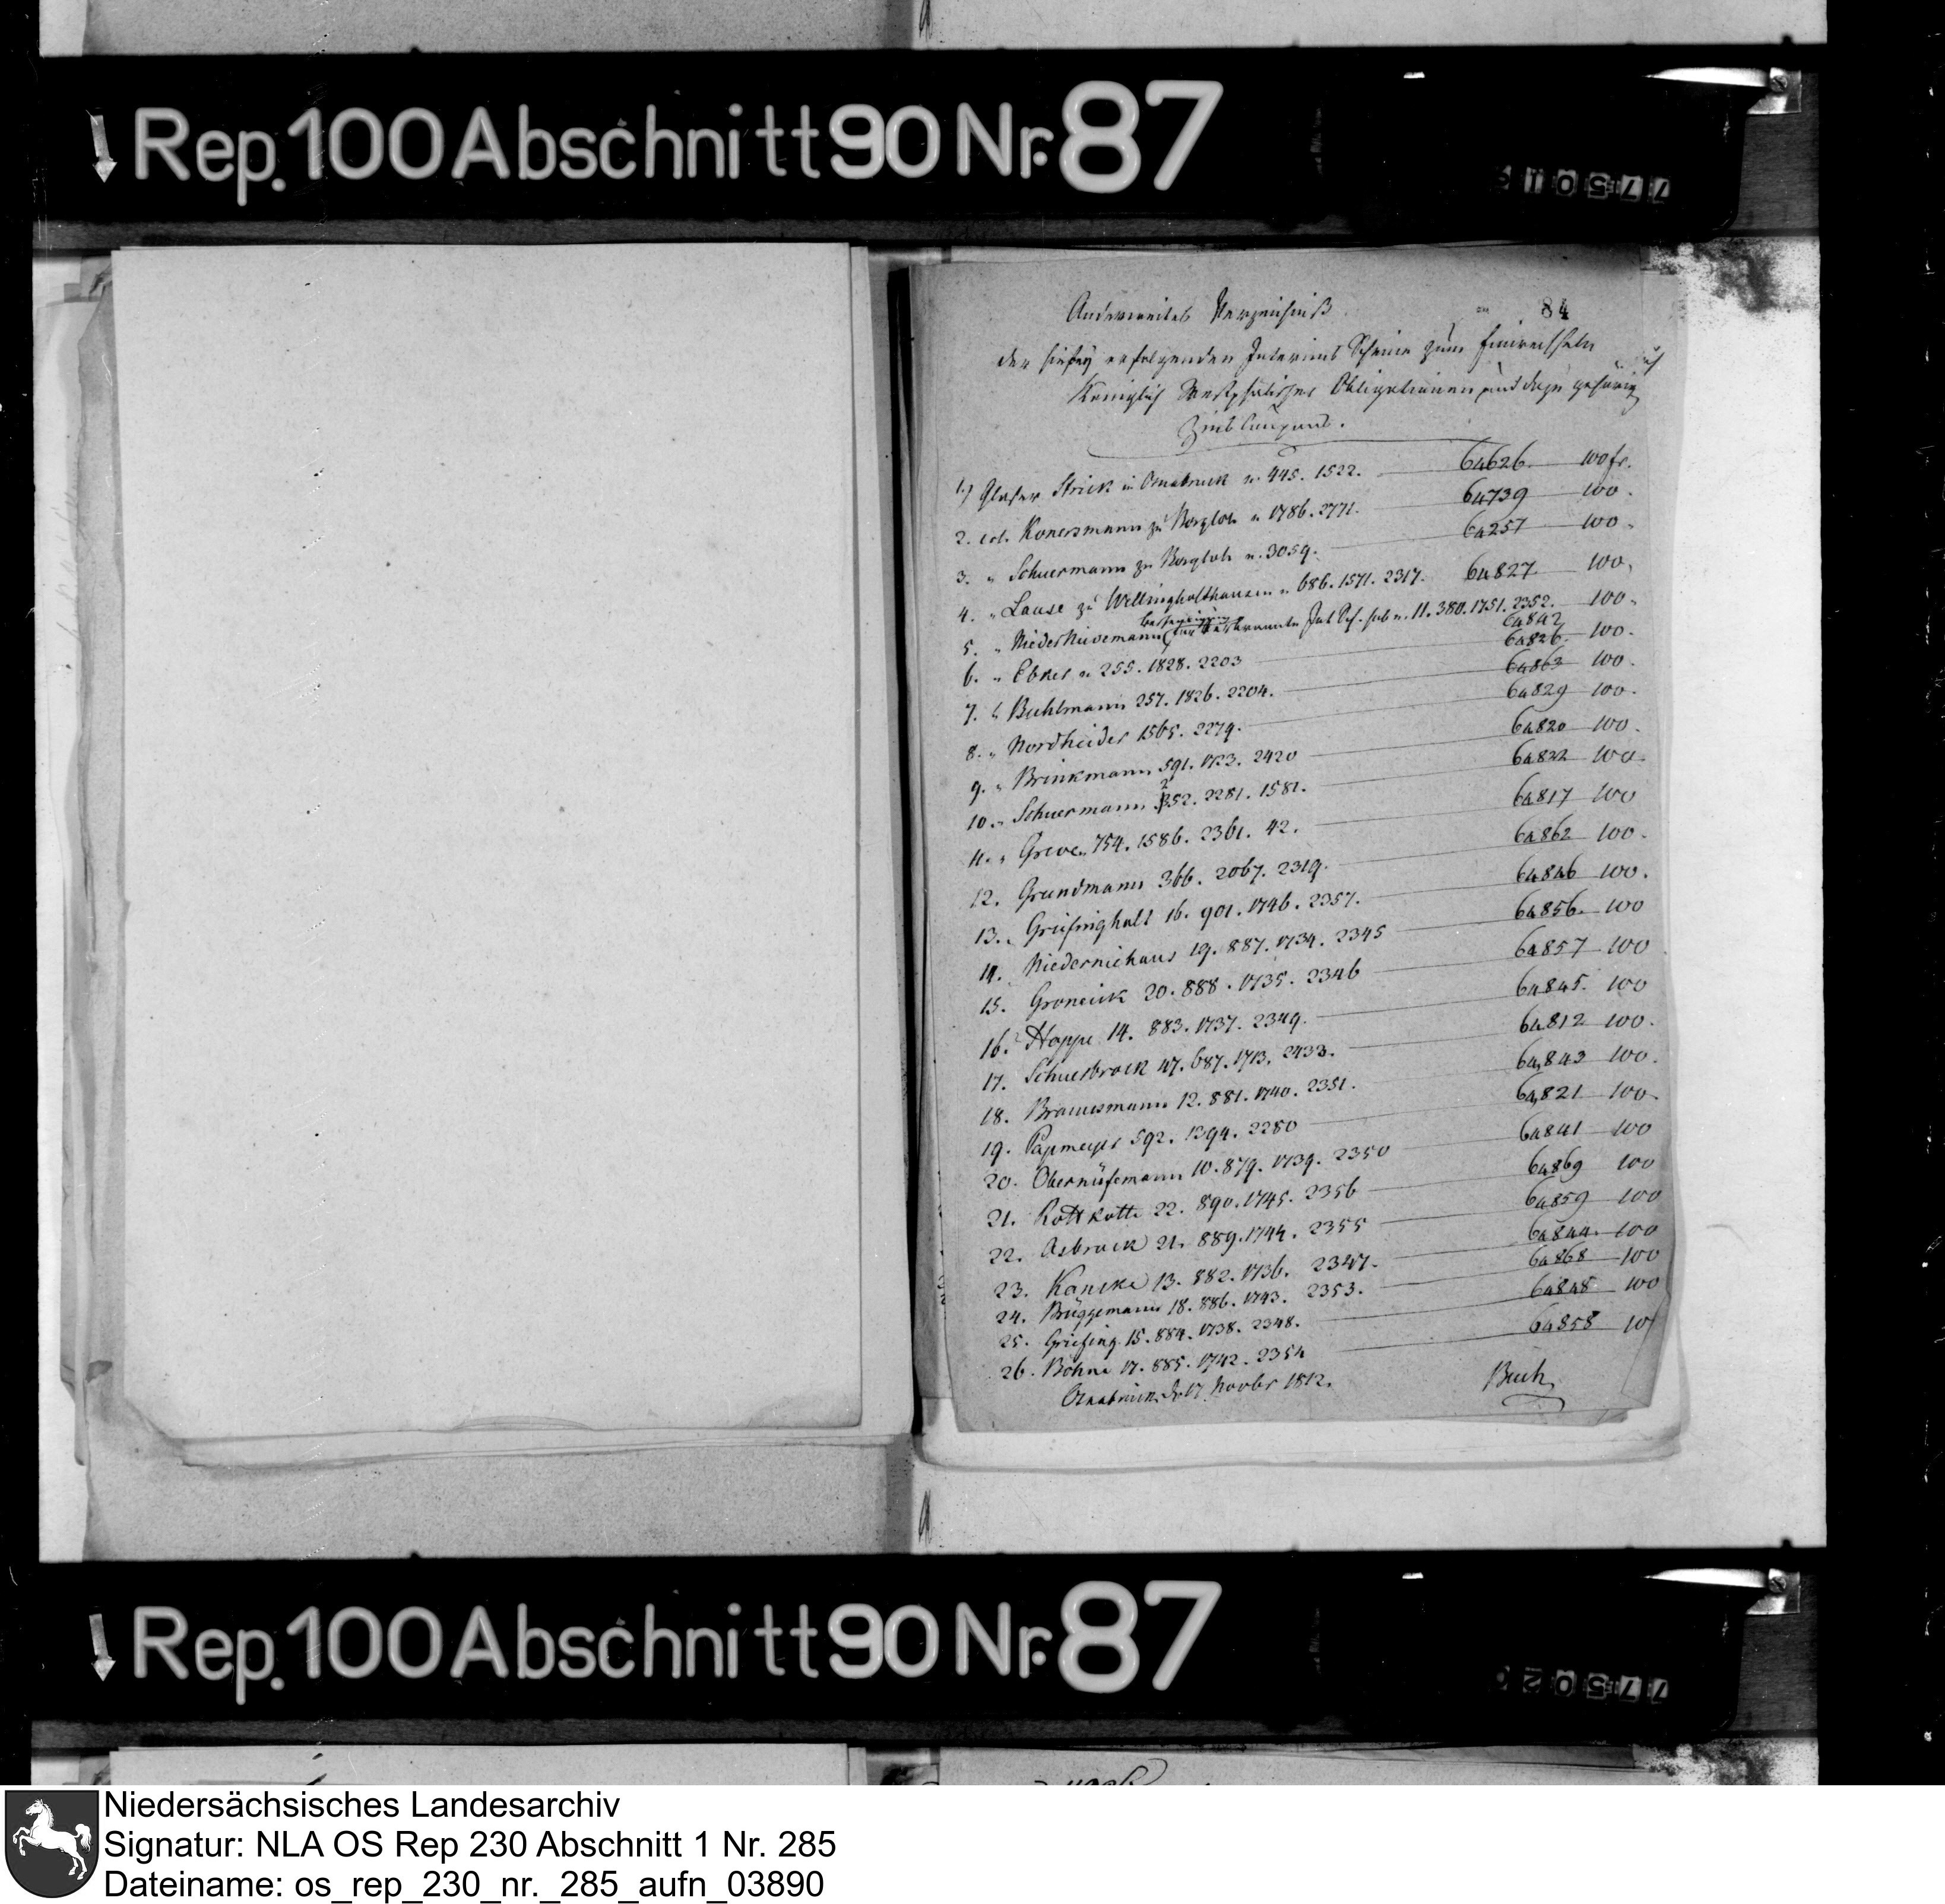 Rep. 100 Abschnitt 90 Nr. 87
77501
84
Anderweites Verzeichniß
der hiebey erfolgenden Interims Scheine zum Einwechseln
Königlich Westphälischer Obligationen und dazu gehörig
Zins Coupons.
1.) Glaser Strick in Osnabruck n. 445. 1522. 64626. 100 fr.
2. col. Konersmann zu Borgloh n. 1786. 2771. 64739 100.
3. " Schuermann zu Borgloh n. 3059. 64257 100.
4. " Lause zu Wellingholthausen n. 686. 1571. 2317. 64827 100.
5. " Niederhuvemann Int Sch. sub n. 11. 380. 1751. 2352. 64842 100.
6. " Ebker n. 255. 1828. 2203 64826. 100.
7. " Buhlmann 257. 1826. 2204. 64863 100.
8. " Nordheider 1565. 2279. 64829 100.
9. " Brinkmann 591. 1723. 2420 64820 100.
10. " Schuermann 252. 2281. 1581. 64822 100.
11. " Greve 754. 1586. 2361. 42. 64817 100
12. Grundmann 366. 2067. 2319. 64862 100.
13. " Griefinghalt 16. 901. 1746. 2357. 64846 100.
14. Niederniehaus 19. 887. 1734. 2345 64856. 100
15. Groneick 20. 888. 1735. 2346 64857 100
16. Hoppe 14. 883. 1737. 2349. 64845. 100
17. Schuerbrock 47. 687. 1713. 2433. 64812 100.
18. Brauesmann 12. 881. 1740. 2351. 64843 100.
19. Papmeyer 592. 1394. 2280 64821 100.
20. Obernüfemann 10. 879. 1739. 2350 64841 100
21. Rottkotte 22. 890. 1745. 2356 64869 100
22. Asbrock 21. 889. 1744. 2355 64859 100
23. Kancke 13. 882. 1736. 2347. 64844. 100
24. Brüggemann 18. 886. 1743. 2353. 64868 100
25. Griefing 15. 884. 1738. 2348. 64848 100
26. Böhne 17. 885. 1742. 2354 64858 100
Osnabrück d. 17 Novbr 1812.
Buch
Rep. 100 Abschnitt 90 Nr. 87
77502
Niedersächsisches Landesarchiv
Signatur: NLA OS Rep 230 Abschnitt 1 Nr. 285
Dateiname: os_rep_230_nr._285_aufn_03890